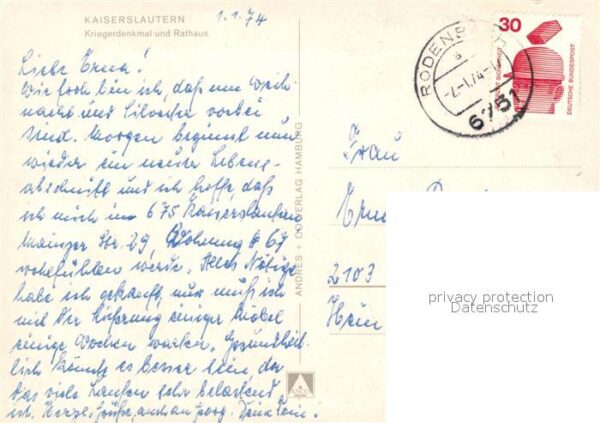 KAISERSLAUTERN
Kriegerdenkmal und Rathaus
1.1.74
Liebe Erna!
Wie froh bin ich, daß nun Weih-
nacht und Silvester vorbei
sind. Morgen beginnt nun
wieder ein neuer Lebens-
abschnitt und ich hoffe, daß
ich mich in 675 Kaiserslautern
Mainzer Str. 29, Wohnung # 67
wohlfühlen werde. Alles Nötige
habe ich gekauft, nur muß ich
mit der Lieferung einiger Möbel
einige Wochen warten. Gesundheit-
lich könnte es besser sein, da
das viele Laufen sehr belastend
ist. Herzl. Grüße, auch an Georg.
ANDRES + CO VERLAG HAMBURG
RODENB
-2.-1.74-
6751
30
DEUTSCHE BUNDESPOST
Frau
2103
privacy protection
Datenschutz